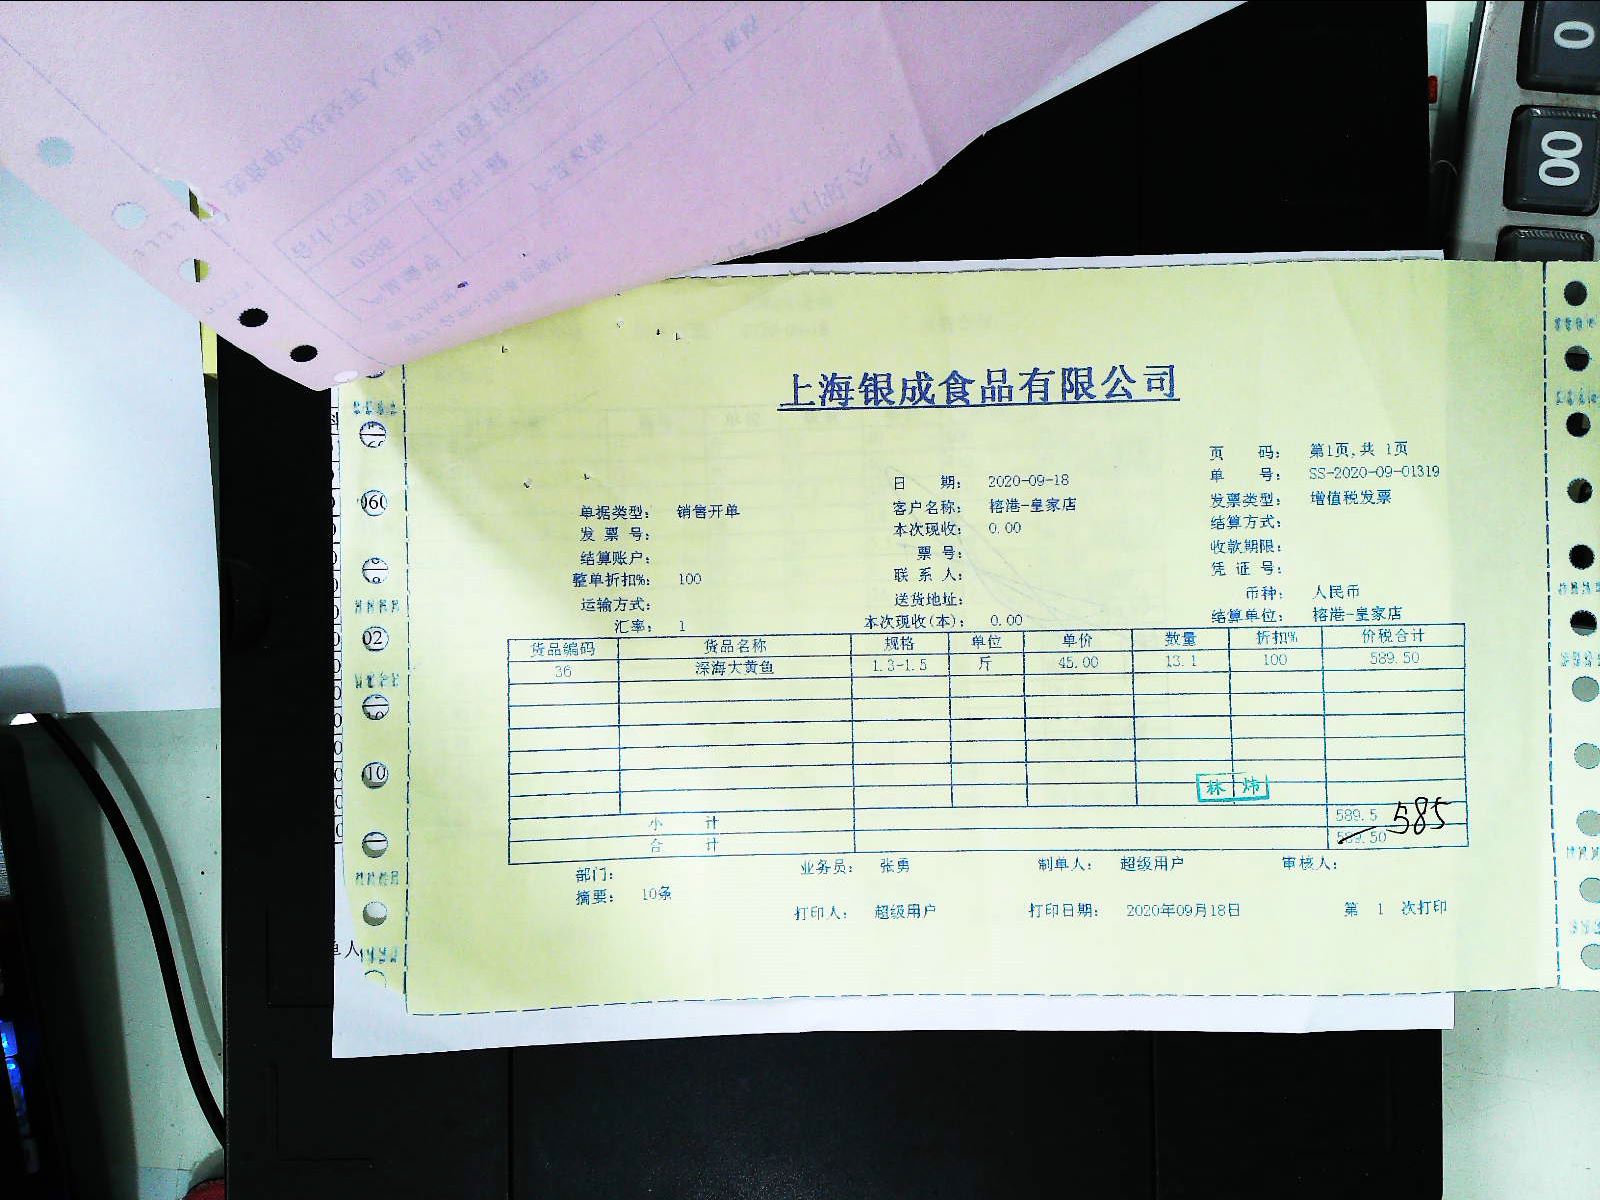 上海银成食品有限公司
页 码： 第1页，共 1页
日 期： 2020-09-18 单 号： SS-2020-09-01319
单据类型： 销售开单 客户名称： 榕港-皇家店 发票类型： 增值税发票
发 票 号： 本次现收： 0.00 结算方式：
结算账户： 票 号： 收款期限：
整单折扣%： 100 联 系 人： 凭 证 号：
运输方式： 送货地址： 币种： 人民币
汇率： 1 本次现收(本)： 0.00 结算单位： 榕港-皇家店
货品编码 货品名称 规格 单位 单价 数量 折扣% 价税合计
36 深海大黄鱼 1.3-1.5 斤 45.00 13.1 100 589.50
林 炜
小 计 589.5 585
合 计 589.50
部门： 业务员： 张勇 制单人： 超级用户 审核人：
摘要： 10条
打印人： 超级用户 打印日期： 2020年09月18日 第 1 次打印
0
00
060
02
10
单人